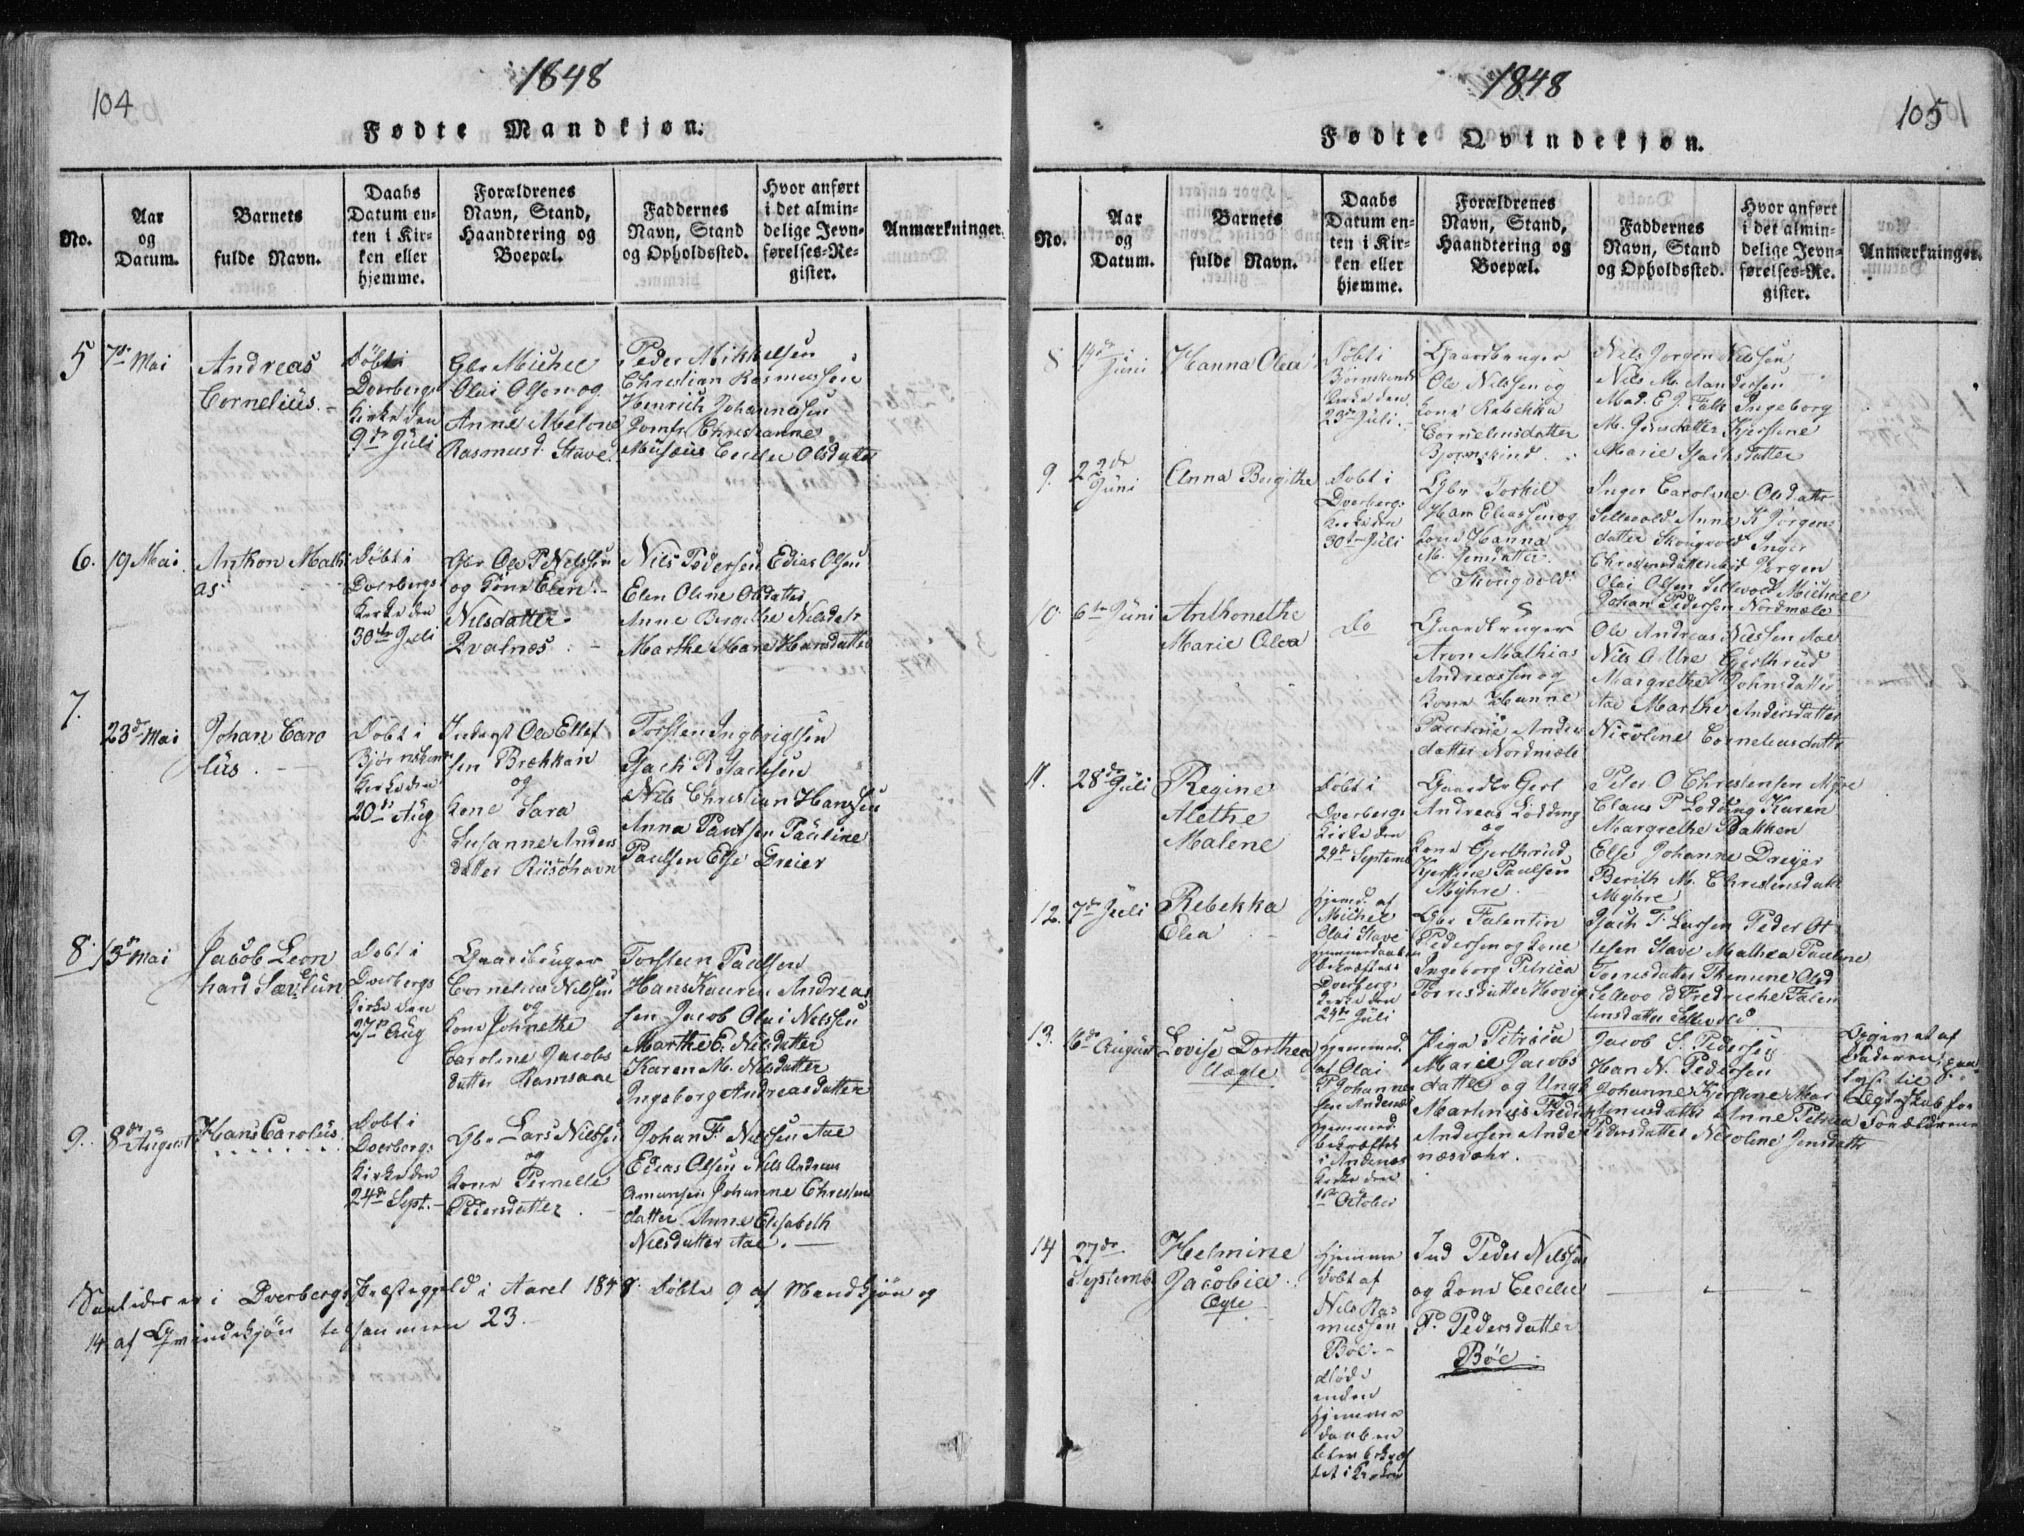 104
1848
Fødte Mandkjøn.
No.
Aar
og
Datum.
Barnets
fulde Navn.
Daabs
Datum en-
ten i Kir-
ken eller
hjemme.
Forældrenes
Navn, Stand,
Haandtering og
Boepæl.
Faddernes
Navn, Stand
og Opholdssted.
Hvor anført
i det almin-
delige Jevn-
førelses-Re-
gister.
Anmærkninger.
5
7de Mai
Andreas
Cornelius.
Døbt i
Dverbergs
Kirke den
9de Juli
Gbr Michel
Olai Olsen og
Anne Malene
Rasmusd. Stave.
Peder Mikkelsen
Christian Rasmussen
Henrich Johannesen
Jomfr Christianne
Musæus Cecilie Olsdatter
6.
19 Mai
Anthon Mathi
as
Døbt i
Dverbergs
Kirke den
30te Juli
Gbr Ole P Nilssen
og Kone Elen
Nilsdatter
Qvalnæs
Nils Pedersen Edias Olsen
Elen Oline Olsdatter
Anne Bergithe Nilsdatr
Marthe Mare Hansdatter
7.
23de Mai
Johan Caro
lus
Døbt i
Kirke den
20de Aug
Inderst Ole Ellef
sen Brækkan
og
Kone Sara
Susanne Anders
datter Riisøhavn
Torsten Ingbrigtsen
Isach R Isachsen
Nils Christian Hanssen
Anna Paulsen Pauline
Paulsen Else Dreier
8.
13de Mai
Jacob Leon
hard
Døbt i
Dverbergs
Kirke den
27de Aug
Gaardbruger
Cornelius Nilssen
og
Kone Johnethe
Caroline Jacobs
datter Ramsaae
Torsteen Paulsen
Hans Kauren Andreas
sen Jacob Olai Nilssen
Marthe E. Nilsdatter
Karen M. Nilsdatter
Ingeborg Andreasdatter
9.
8de August
Hans Carolus.
Døbt i
Dverbergs
Kirke den
24de Sept.
Gbr Lars Nilssen
og
Kone Pernelle
Pedersdatter.
Johan F. Nilssen Aae
Edias Olsen Nils Andreas
Amunsen Johanne Christens
datter Anne Elisabeth
Nilsdatter Aae.
Saaledes er i Dverbergs Præstegjeld i Aaret 1848 Døbte 9 af Mandkjøn og
14 af Qvindekjøn tilsammen 23.
1848
105
Fødte Qvindekjøn.
No.
Aar
og
Datum.
Barnets
fulde Navn.
Daabs
Datum en-
ten i Kir-
ken eller
hjemme.
Forældrenes
Navn, Stand,
Haandtering og
Boepæl.
Faddernes
Navn, Stand
og Opholdssted.
Hvor anført
i det almin-
delige Jevn-
førelses-Re-
gister.
Anmærkninger.
8
Juni
Hanna Olea
Døbt i
Kirke den
23de Juli.
Gaardbruger
Ole Nilssen og
Kone Rebekka
Corneliusdatter
Bjørnskind.
Nils Jørgen Nilssen
Nils M. Aandersen
Mad. E J. Falk Ingeborg
M. Jensdatter Kjerstine
Marie Isachsdatter
9.
22de
Juni
Anna Birgithe
Døbt i
Dverbergs
Kirke den
30te Juli
Gbr Torkil
Han Eliassen og
Kone Hanna
M. Jensdatter
Skougvold
Inger Caroline Olsdatr
Sellevold Anne K Jørgens
datter Skougvold Inger
Jørgen
Olai Olsen Sellevold Michael
Johan Pedersen Nordmæle
10.
6te Juni
Anthonethe
Marie Olea
do
Gaardbruger
Aron Mathias
Andreassen og
Kone Hanne
Pauline Anders
datter Nordmæle
Ole Andreas Nilssen Aae
Nils O Ure Gjerthrud
Margrethe Johnsdatter
Aae Marthe Andersdatter
Nicoline Corneliusdatter
11.
28de Juli
Regine
Alethe
Malene
Døbt i
Dverbergs
Kirke den
24de Septemb
Gaardbr Gert
Andreas Lodding
og
Kone Gjerthrud
Kjerstine Paulsen
Myhre
Peter O Christensen Myre
Claus P Lodding Karen
Margrethe Bakken
Else Johanne Dreyer
Berith M. Christensdatt
Myhre
12.
7de Juli
Rebekka
Elea
hjemd. af
Michel
Olai Stave
hjemmedaaben
bekræftet i
Dverbergs
Kirke den
24de Juli
Gbr Falentin
Pedersen og Kone
Ingeborg Petrica
Torrisdatter Hovig
Isach T. Larsen Peder Ot
tesen Stave Mathea Pauline
Torrisdatter Olsd
Sellevold Fredriche Falen
tinsdatter Sellevold
13.
6de August
Lovise Dorthea
Uægte
hjemmed.
af Olai
P Johannes
sen Andenæs
hjemmed.
bekræftet
i Andenæs
Kirke den
1ste October
Pige Petrica
Marie Jacobs
datter og Ungk
Martinus Fredrik
Andersen Ande
næsvahr.
Jacob S. Pedersen
Han N. Pedersen
Johanne Kjerstine Mar
tinusdatter Anne Petrica
Pedersdatter Nicoline Jensdatter
af
Faderen
til
Ægteskab for
Forældrene
14
27de
Septemb.
Helmine
Jacobia.
Ægte
hjemme
døbt af
Nils Ras
mussen
Böe
døde
inden
hjemme
daaben
blev bekræf
tet i Kirken
Ind Peder Nilssen
og Kone Cecilie
P. Pedersdatter
Böe